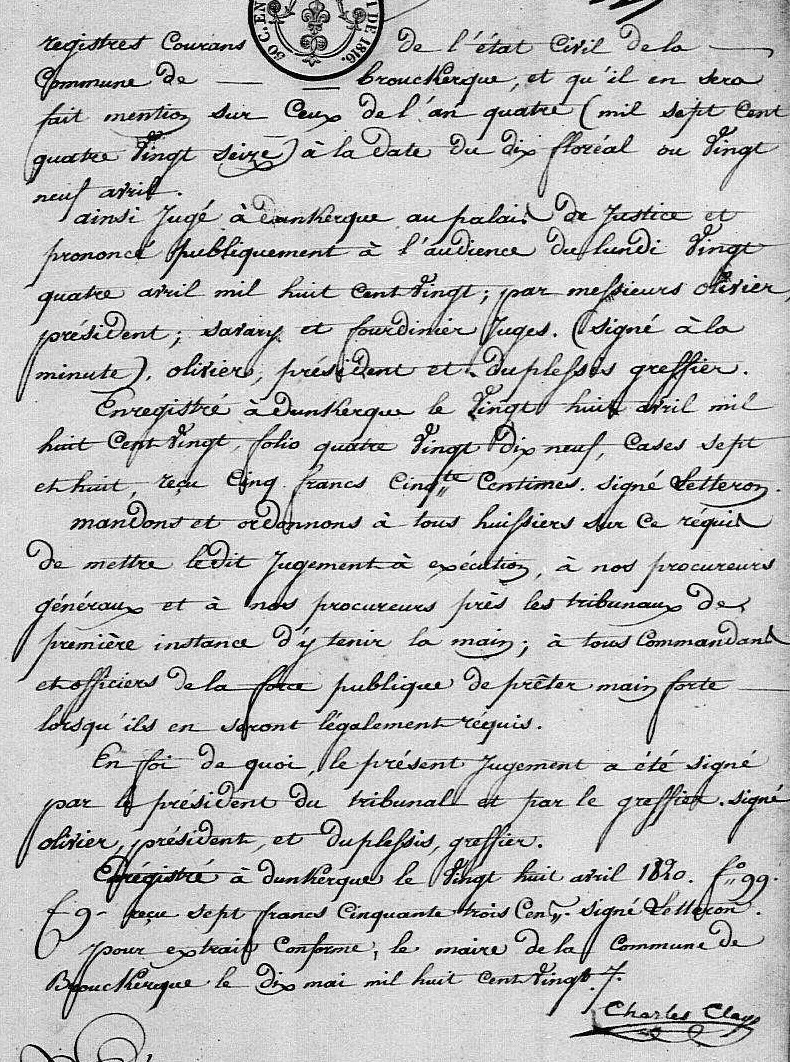 registres Courans de l'état Civil de la
Commune de — — brouckerque, et qu'il en sera
fait mention sur Ceux de l'an quatre (mil sept Cent
quatre Vingt Seize) à la date du dix floréal ou Vingt
neuf avril.
ainsi Jugé à dunkerque au palais de Justice et
prononcé publiquement à l'audience du lundi Vingt
quatre avril mil huit Cent Vingt; par messieurs olivier,
président; savary et fourdinier Juges. (signé à la
minute), olivier, président et duplessis greffier.
Enregistré à dunkerque le Vingt huit avril mil
huit Cent Vingt, folio quatre Vingt dix neuf, Cases sept
et huit, reçu Cinq francs Cinqte Centimes. signé Letteron.
mandons et ordonnons à tous huissiers sur Ce réquis
de mettre le dit Jugement à exécution, à nos procureurs
généraux et à nos procureurs près les tribunaux de
première instance d'y tenir la main; à tous Commandans
et officiers de la force publique de prêter main forte
lorsqu'ils en seront légalement réquis.
En foi de quoi, le présent Jugement a été signé
par le président du tribunal et par le greffier. signé
olivier, président, et duplessis, greffier.
Enrégistré à dunkerque le Vingt huit avril 1820. fo 99.
reçu sept francs Cinquante trois Cen. signé Letteron.
pour extrait Conforme, le maire de la Commune de
Brouckerque le dix mai mil huit cent Vingt.
Charles Clays